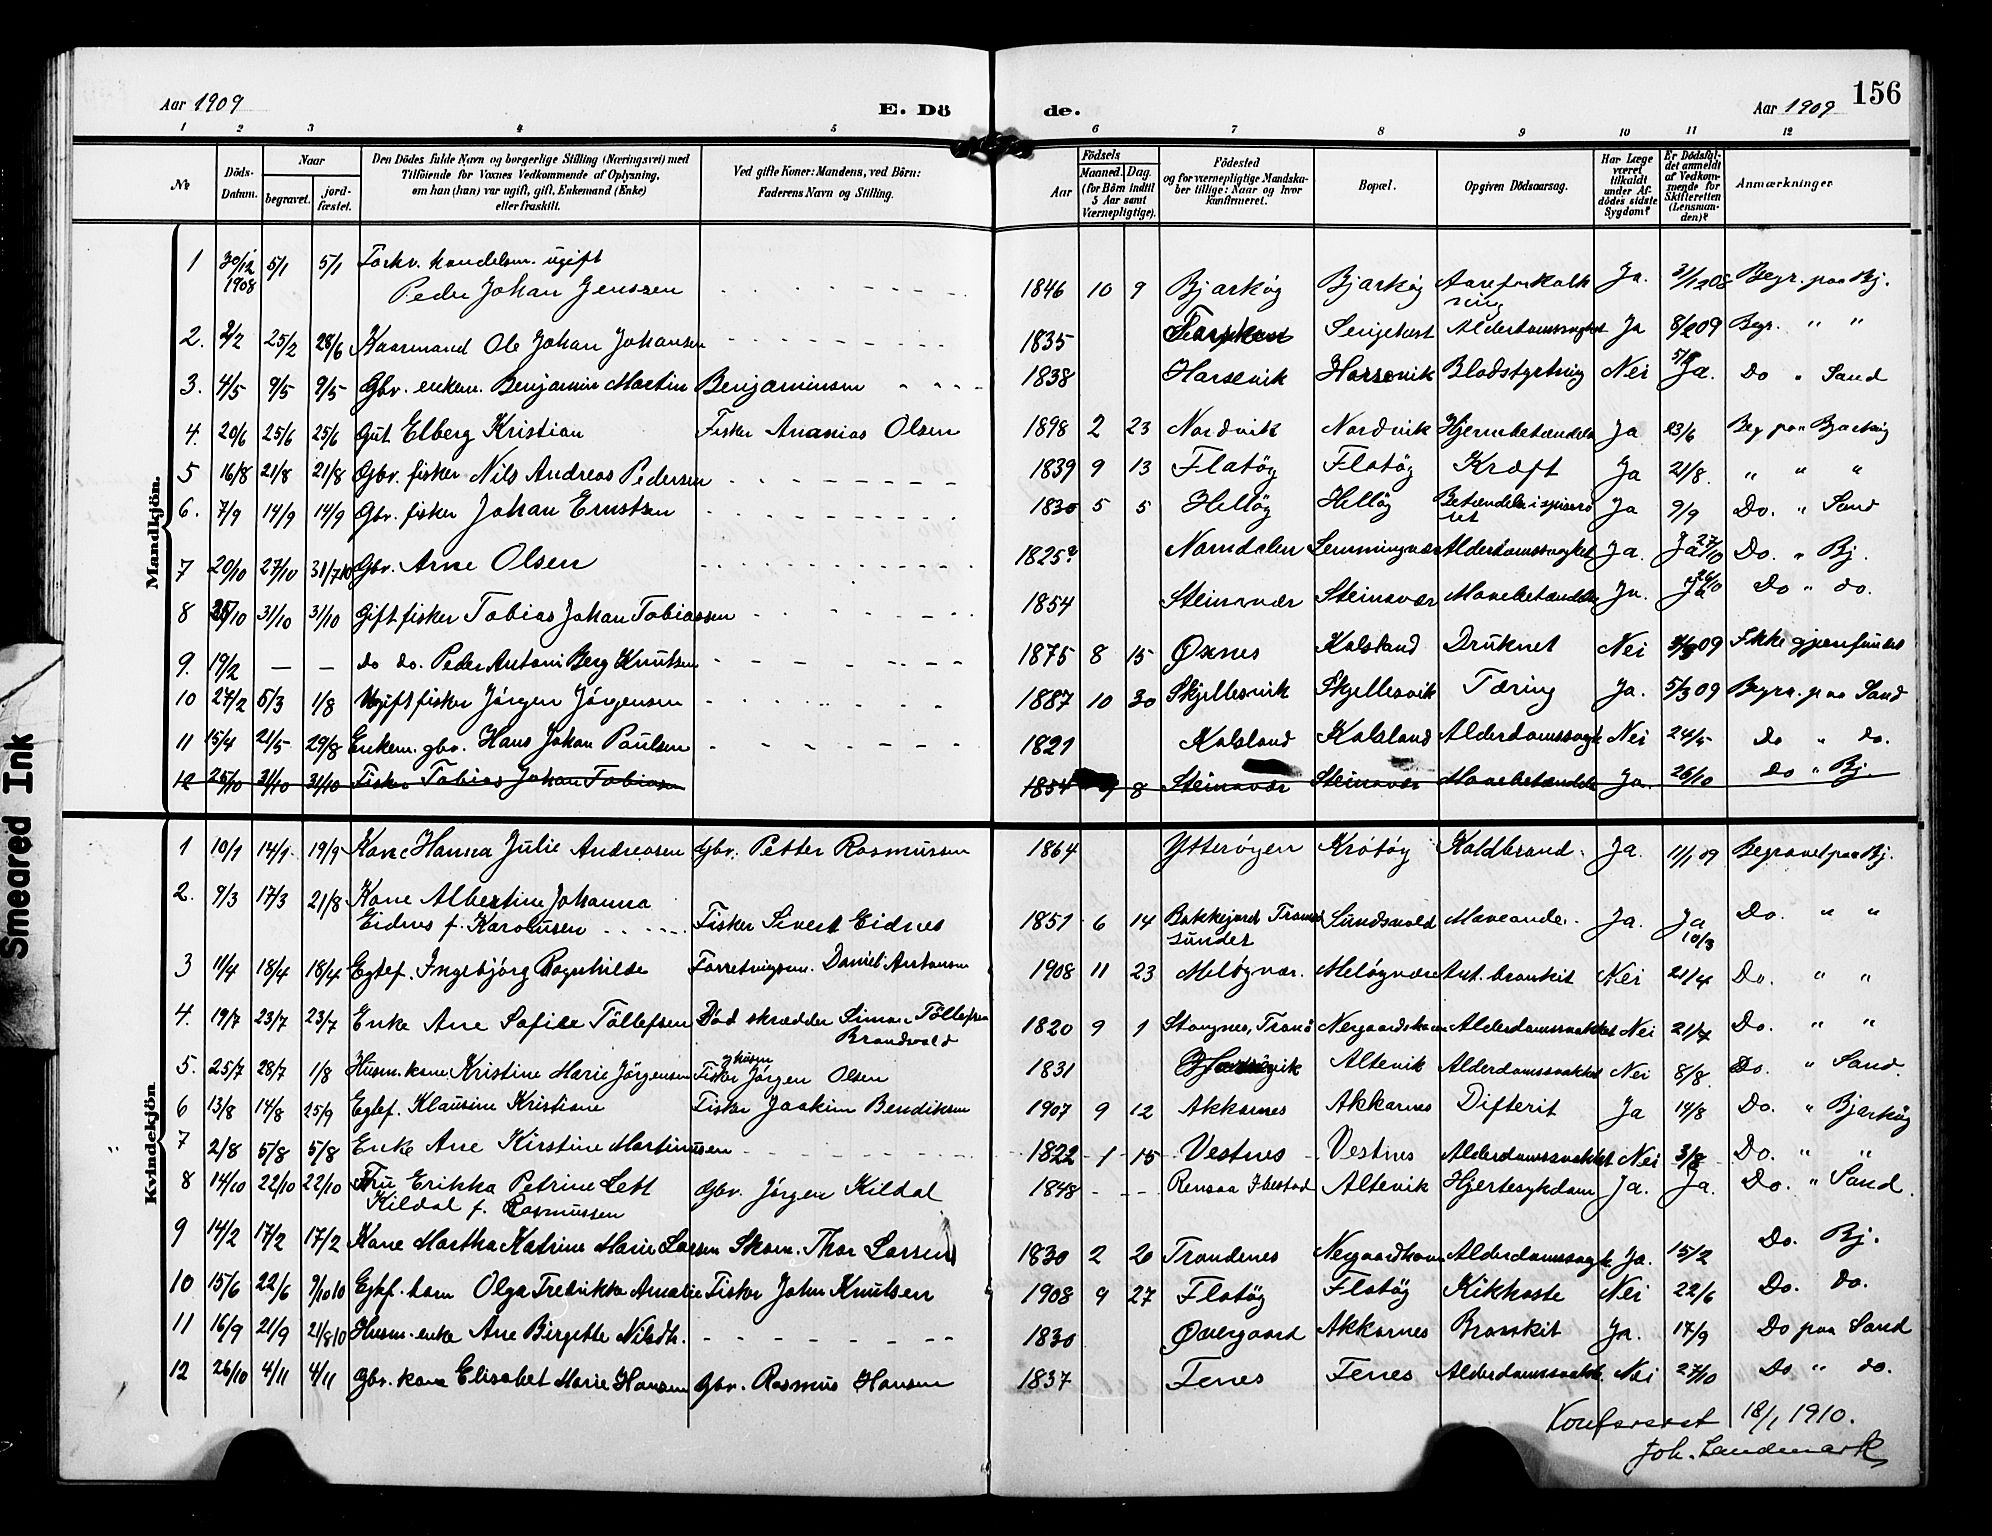 Aar 1909
E. Dö
de.
Aar 1909
156
1 2 3 4 5 6 7 8 9 10 11 12
№
Döds-Datum.
Naar
begravet.
jord-fæstet.
Den Dödes fulde Navn og borgerlige Stilling (Næringsvei) med
Tilföiende for Voxnes Vedkommende af Oplysning,
om han (hun) var ugift, gift, Enkemand (Enke)
eller fraskilt.
Ved gifte Koner: Mandens, ved Börn:
Faderens Navn og Stilling.
Födsels
Aar
Maaned. Dag.
(for Börn indtil
5 Aar samt
Værnepligtige).
Födested
og for værnepligtige Mandska-
ber tillige: Naar og hvor
konfirmeret.
Bopæl.
Opgiven Dödsaarsag.
Har Læge
været
tilkaldt
under Af-
dödes sidste
Sygdom?
Er Dödsfal-
det anmeldt
af Vedkom-
mende for
Skifteretten
(Lensman-
den)?
Anmærkninger
Mandkjön.
1 30/12 1908 5/1 5/1 Forhv. handelsm. ugift
Peder Johan Jenssen 1846 10 9 Bjarköy Bjarköy Aareforkalkning Ja. 31/12 08 Begr. paa Bj.
2. 2/2 25/2 28/6 Kaarmand Ole Johan Johansen 1835 Alderdomssvaghet Ja 8/2 09 Begr. " "
3. 4/5 9/5 9/5 Gbr. enkem. Benjamin Martin Benjaminsen 1838 Harsevik Harsevik Blodstyrtning Nei Ja. Do " Sand
4. 20/6 25/6 25/6 Gut Elberg Kristian Fisker Ananias Olsen 1898 2 23 Nordvik Nordvik Hjernebetændelse Ja 23/6 Beg paa Bjarköy
5 16/8 21/8 21/8 Gbr. fisker Nils Andreas Pedersen 1839 9 13 Flatöy Flatöy Kræft Ja 21/8. " " "
6. 7/9 14/9 14/9 Gbr. fisker Johan Ernstsen 1830 5 5 Hellöy Hellöy Betændelse i spiseröret Ja 9/9 Do. " Sand
7 20/10 27/10 31/7 10 Gbr. Arne Olsen 1825? Namdalen Lemmingvær Alderdomssvaghet Ja. Ja 27/10 Do. " Bj.
8 25/10 31/10 31/10 Gift fisker Tobias Johan Tobiassen 1854 Steinavær Steinavær Mavebetændelse Ja. Ja 26/10 Do " do.
9. 19/2 — — do do. Peder Antoni Berg Knutsen 1875 8 15 Öxnes Kalsland Druknet Nei 09 Ikke gjenfundet
10 27/2 6/3 1/8 Ugift fisker Jörgen Jörgensen 1887 10 30 Skjellesvik Skjellesvik Tæring Ja. 5/3 09 Begra. paa Sand
11 15/4 21/5 29/8 Enkem. gbr. Hans Johan Paulsen 1821 Kalsland Kalsland Alderdomssvagh Nei 24/5 Do " do.
12 25/10 31/10 31/10 Fisker Tobias Johan Tobiasen 1854 9 8 Steinavær Steinavær Mavebetændelse Ja. 26/10 do " Bj.
Kvindekjön.
1 10/1 14/1 19/9 Kone Hanna Julie Andreasen Gbr. Petter Rasmussen 1864 Ytteröyen Krötöy Koldbrand. Ja. 11/1 09 Begravet paa Bj.
2. 9/3 17/3 21/8 Kone Albertine Johanna
Eidnes f. Karolusen Fisker Sivert Eidnes 1851 6 14 Bakkejord Tromsösundet Sundsvold Maveonde Ja. Ja 10/3 Do. " "
3 11/4 18/4 18/4 Egtef. Ingebjörg Ragnhilde Forretningsm. Daniel Antonsen 1908 11 23 Melöyvær. Melöyvær Aut. bronkit Nei 21/4 Do. " "
4. 19/7 23/7 23/7 Enke Ane Sofie Töllefsen Död skrædder Simon Töllefsen
Brandvold 1820 9 1 Stangnes, Tranö Alderdomssvakhet Nei 21/7 Do. " "
5. 25/7 28/7 1/8 Husm. kone Kristine Marie Jörgensen Fisker Jörgen Olsen 1831 Altevik Alderdomssvakhet Nei 8/8. Do. " Sand
6 13/8 14/8 25/9 Egtef. Klausine Kristiane Fisker Joakim Bendiksen 1907 9 12 Akkarnes Akkarnes Difterit Ja 14/8 Do. " Bjarköy
7 2/8 5/8 5/8 Enke Ane Kirstine Martinusen 1822 1 15 Vestnes Vestnes Alderdomssvakhet Nei 3/8 Do. " "
8 14/10 22/10 22/10 Fru Erikka Petrine Lett
Kildal f. Rasmussen Gbr. Jörgen Kildal 1848 Rensaa Ibestad Altevik Hjertesykdom Ja. Ja. Do. " Sand.
9 14/2 17/2 17/2 Kone Martha Katrine Marie Larsen Skom. Thor Larsen 1830 2 20 Trondenes Alderdomssvagh Ja. 15/2 Do. Bj.
10 15/6 22/6 9/10 10 Egtef. barn Olga Fredrikke Amalie Fisker John Knutsen 1908 9 27 Flatöy Flatöy Kikhoste Nei 22/6 Do. do.
11 16/9 21/9 21/8 10 Husm. enke Ane Birgitte Nilsdt. 1830 Övergaard Akkarnes Bronkit Ja. 17/9 Do paa Sand
12 26/10 4/11 4/11 Gbr. kone Elisabet Marie Hansen Gbr. Rasmus Hansen 1837 Fenes Fenes Alderdomssvakh. Nei 27/10 Do " do.
Konfereret 18/1 1910.
Joh. Landmark
Smeared Ink